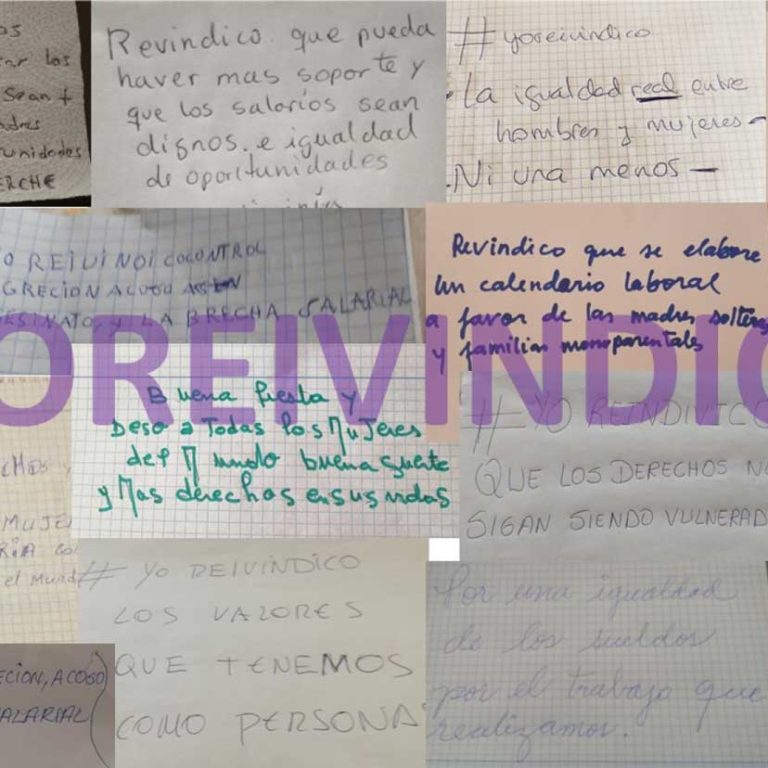 os
los
Sean +
unidades
ERCHE
Revindico que pueda
haver mas soporte y
que los salarios sean
dignos. e igualdad
de oportunidades
# yoreivindico
- La igualdad real entre
hombres y mujeres -
. Ni una menos -
O REIVINDICO CONTROL
GRECION ACOSO
ESINATO, Y LA BRECHA SALARIAL
Revindico que se elabore
un calendario laboral
a favor de las madres solteras
y familias monoparentales
OREIVINDIC
Buena fiesta y
Deso a Todas los Mujeres
del Mundo buena suerte
y Mas derechos en sus vidas
# YO REINDIVICO
QUE LOS DERECHOS NO
SIGAN SIENDO VULNERAD
CHOS
MUJE
RIA CO
el Mund
# YO REIVINDICO
LOS VALORES
QUE TENEMOS
COMO PERSONA
ECION, ACOSO
ALARIAL
Por una igualdad
de los sueldos
por el trabajo que
realizamos.